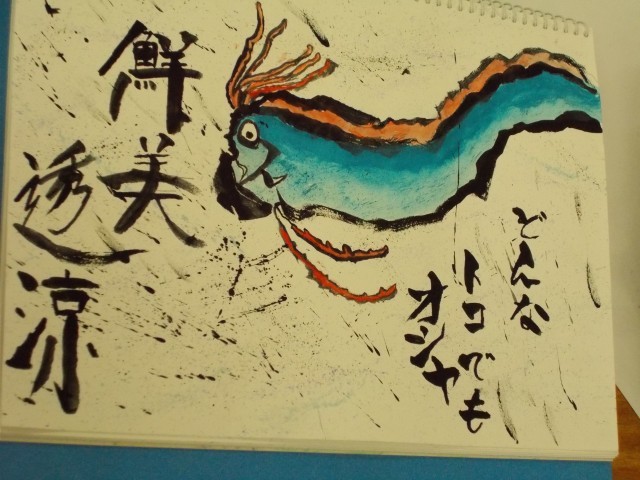 どんな
トコでも
オシャ
鮮美
透涼